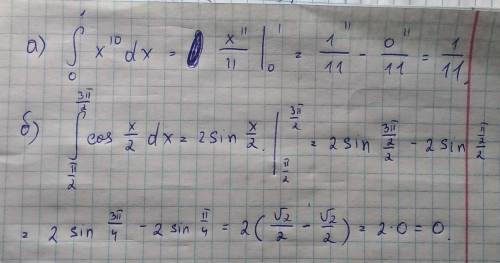 а) ∫₀¹ x¹⁰ dx = x¹¹/11 |₀¹ = 1¹¹/11 - 0¹¹/11 = 1/11.
б) ∫_{π/2}^{3π/2} cos x/2 dx = 2 sin x/2. |_{π/2}^{3π/2} = 2 sin (3π/2)/2 - 2 sin (π/2)/2
= 2 sin 3π/4 - 2 sin π/4 = 2(√2/2 - √2/2) = 2·0 = 0.